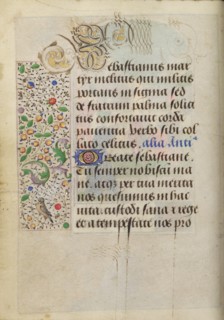 Sebastianus mar
tyr inclitus cui militis
portans insignia sed
de fratrum palma solici
tus confortavit corda
pavencia verbo sibi col
lato celitus. alia Anti.
O beate sebastiane.
Tu semper nobiscum ma
ne. atque per tua merita
nos qui sumus in hac
vita. custodi sana et rege
et a tempestate nos pro